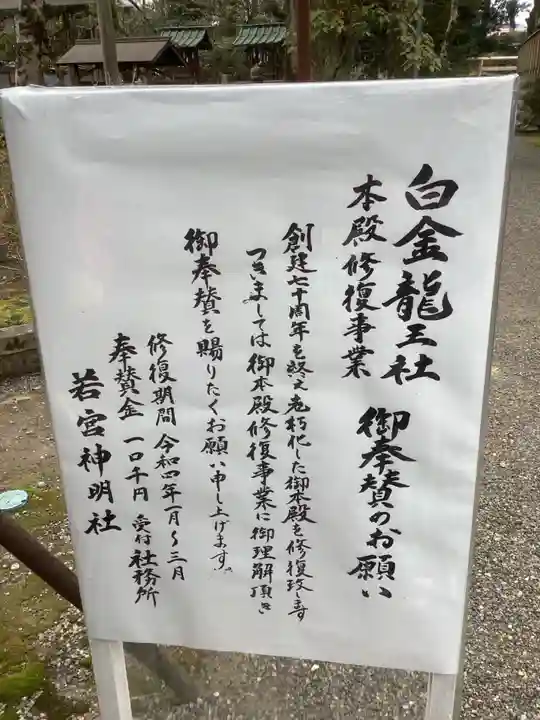 白金龍王社
本殿修復事業
御奉賛のお願い
創建七十周年を終え老朽化した御本殿を修復致します
つきましては御本殿修復事業に御理解頂き
御奉賛を賜りたくお願い申し上げます。
修復期間 令和四年一月〜三月
奉賛金 一口千円 受付 社務所
若宮神明社